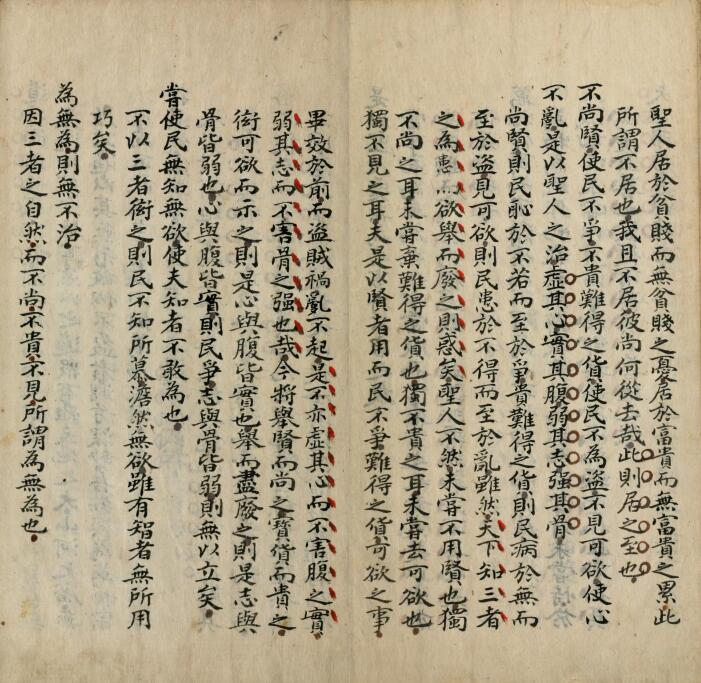 聖人居於貧賤而無貧賤之憂居於富貴而無富貴之累此
所謂不居也我且不居彼尚何從去哉此則居之至也
不尚賢使民不爭不貴難得之貨使民不為盜不見可欲使心
不亂是以聖人之治虛其心實其腹弱其志強其骨
尚賢則民恥於不若而至於爭貴難得之貨則民病於無而
至於盜見可欲則民患於不得而至於亂雖然天下知三者
之為患而欲舉而廢之則惑矣聖人不然未嘗不用賢也獨
不尚之耳未嘗棄難得之貨也獨不貴之耳未嘗去可欲也
獨不見之耳夫是以賢者用而民不爭難得之貨可欲之事
畢效於前而盜賊禍亂不起是不亦虛其心而不害腹之實
弱其志而不害骨之强也哉今將舉賢而尚之寳貨而貴之
衒可欲而示之則是心與腹皆實也舉而盡廢之則是志與
骨皆弱也心與腹皆實則民爭志與骨皆弱則無以立矣
嘗使民無知無欲使夫知者不敢為也
不以三者衒之則民不知所慕澹然無欲雖有智者無所用
巧矣
為無為則無不治
因三者之自然而不尚不貴不見所謂為無為也